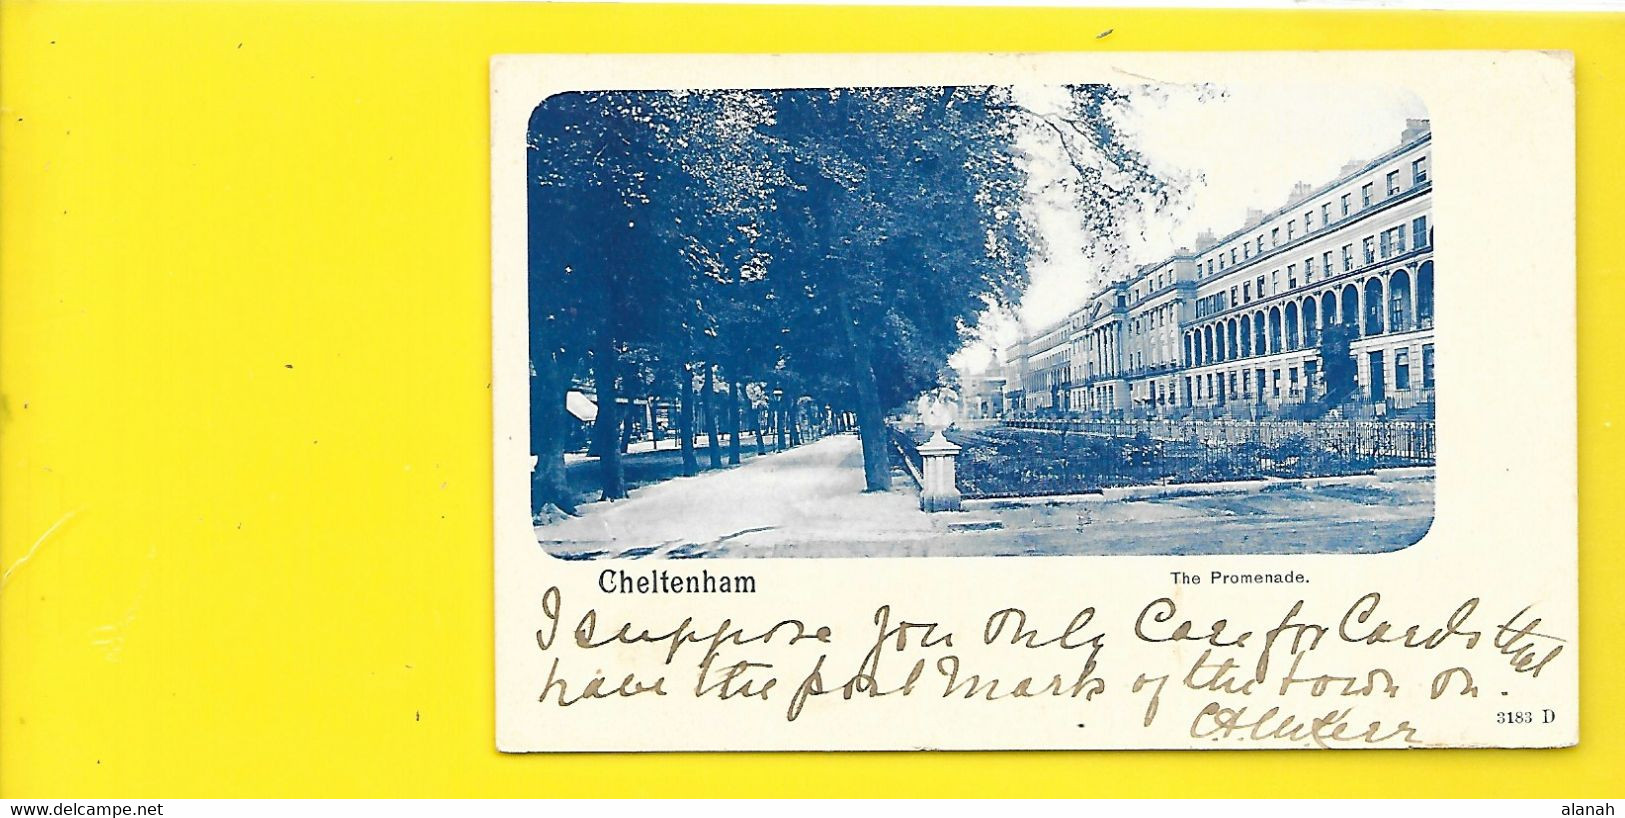 Cheltenham
The Promenade.
I suppose you only Care for Cards that
have the post Mark of the town on.
3183 D
www.delcampe.net
alanah